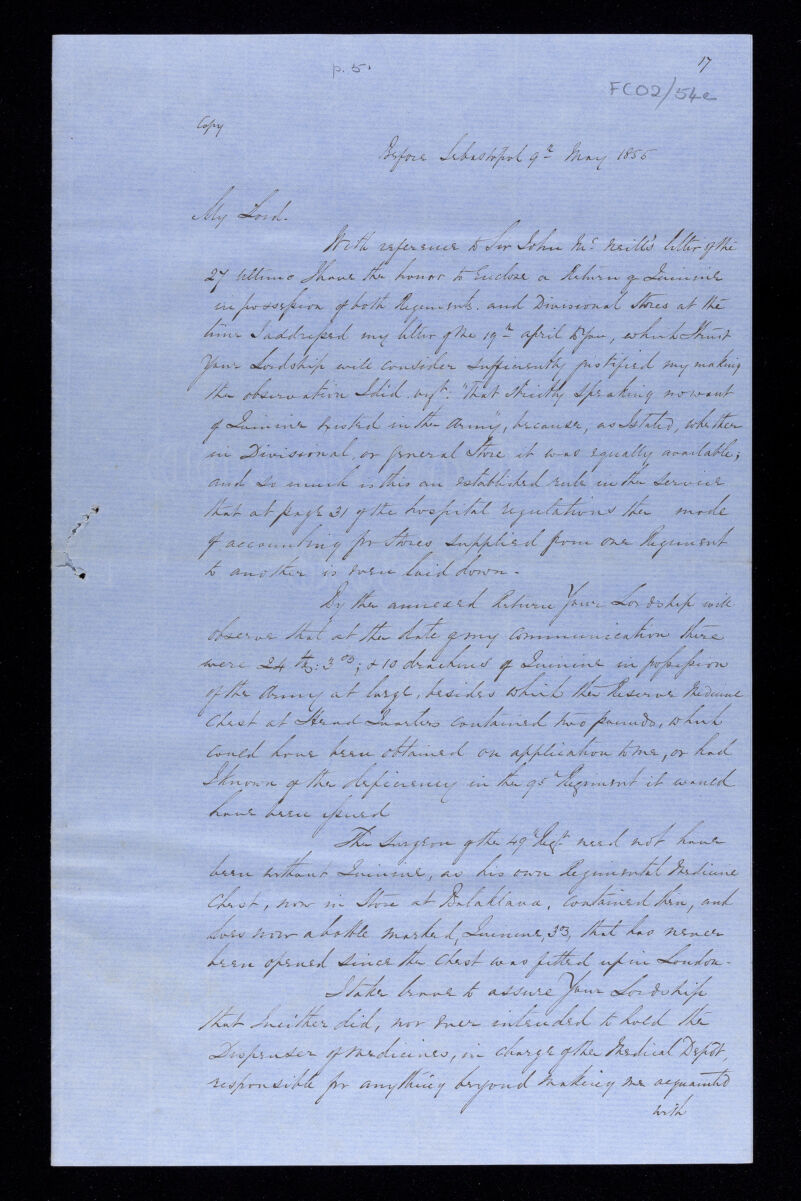 p. 5.
17
FCO2/54c
Copy
Before Sebastopol 9th May 1855
My Lord.
With reference to Sir John Mc Neill's letter of the
27 Ultimo I have the honor to Enclose a Return of Quinine
in possession of both Regiments. and Divisional Stores at the
time I addressed my letter of the 19th april to you, which I trust
Your Lordship will consider sufficiently justified my making
the observation I did, "That strictly speaking no want
of Quinine existed in the Army", because, as I stated, whether
in Divisional, or General Store it was equally available;
and so much is this an established rule in the service
that at page 31 of the hospital regulations the mode
of accounting for Stores supplied from one Regiment
to another is even laid down -
By the annexed Return Your Lordship will
observe that at the date of my communication there
were 24 lb: 3 oz; & 10 drachms of Quinine in possession
of the Army at large, besides which the Reserve Medicine
Chest at Head Quarters contained two pounds, which
could have been obtained on application to me, or had
I known of the deficiency in the 95th Regiment it would
have been issued
The Surgeon of the 49th Regt. need not have
been without Quinine, as his own Regimental Medicine
Chest, now in Store at Balaklava, contained then, and
does now a bottle marked, Quinine, 3 that has never
been opened since the Chest was fitted up in London -
I take leave to assure Your Lordship
that I neither did, nor ever intended to hold the
Dispenser of Medicines, in charge of the Medical Depôt,
responsible for anything beyond making me acquainted
with